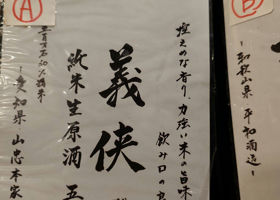 Ⓐ
控えめな香り、力強い米の旨味
飲み口の
義侠
純米生原酒 五
60%精米
~愛知県 山忠本家
Ⓑ
~和歌山県 平和酒造~